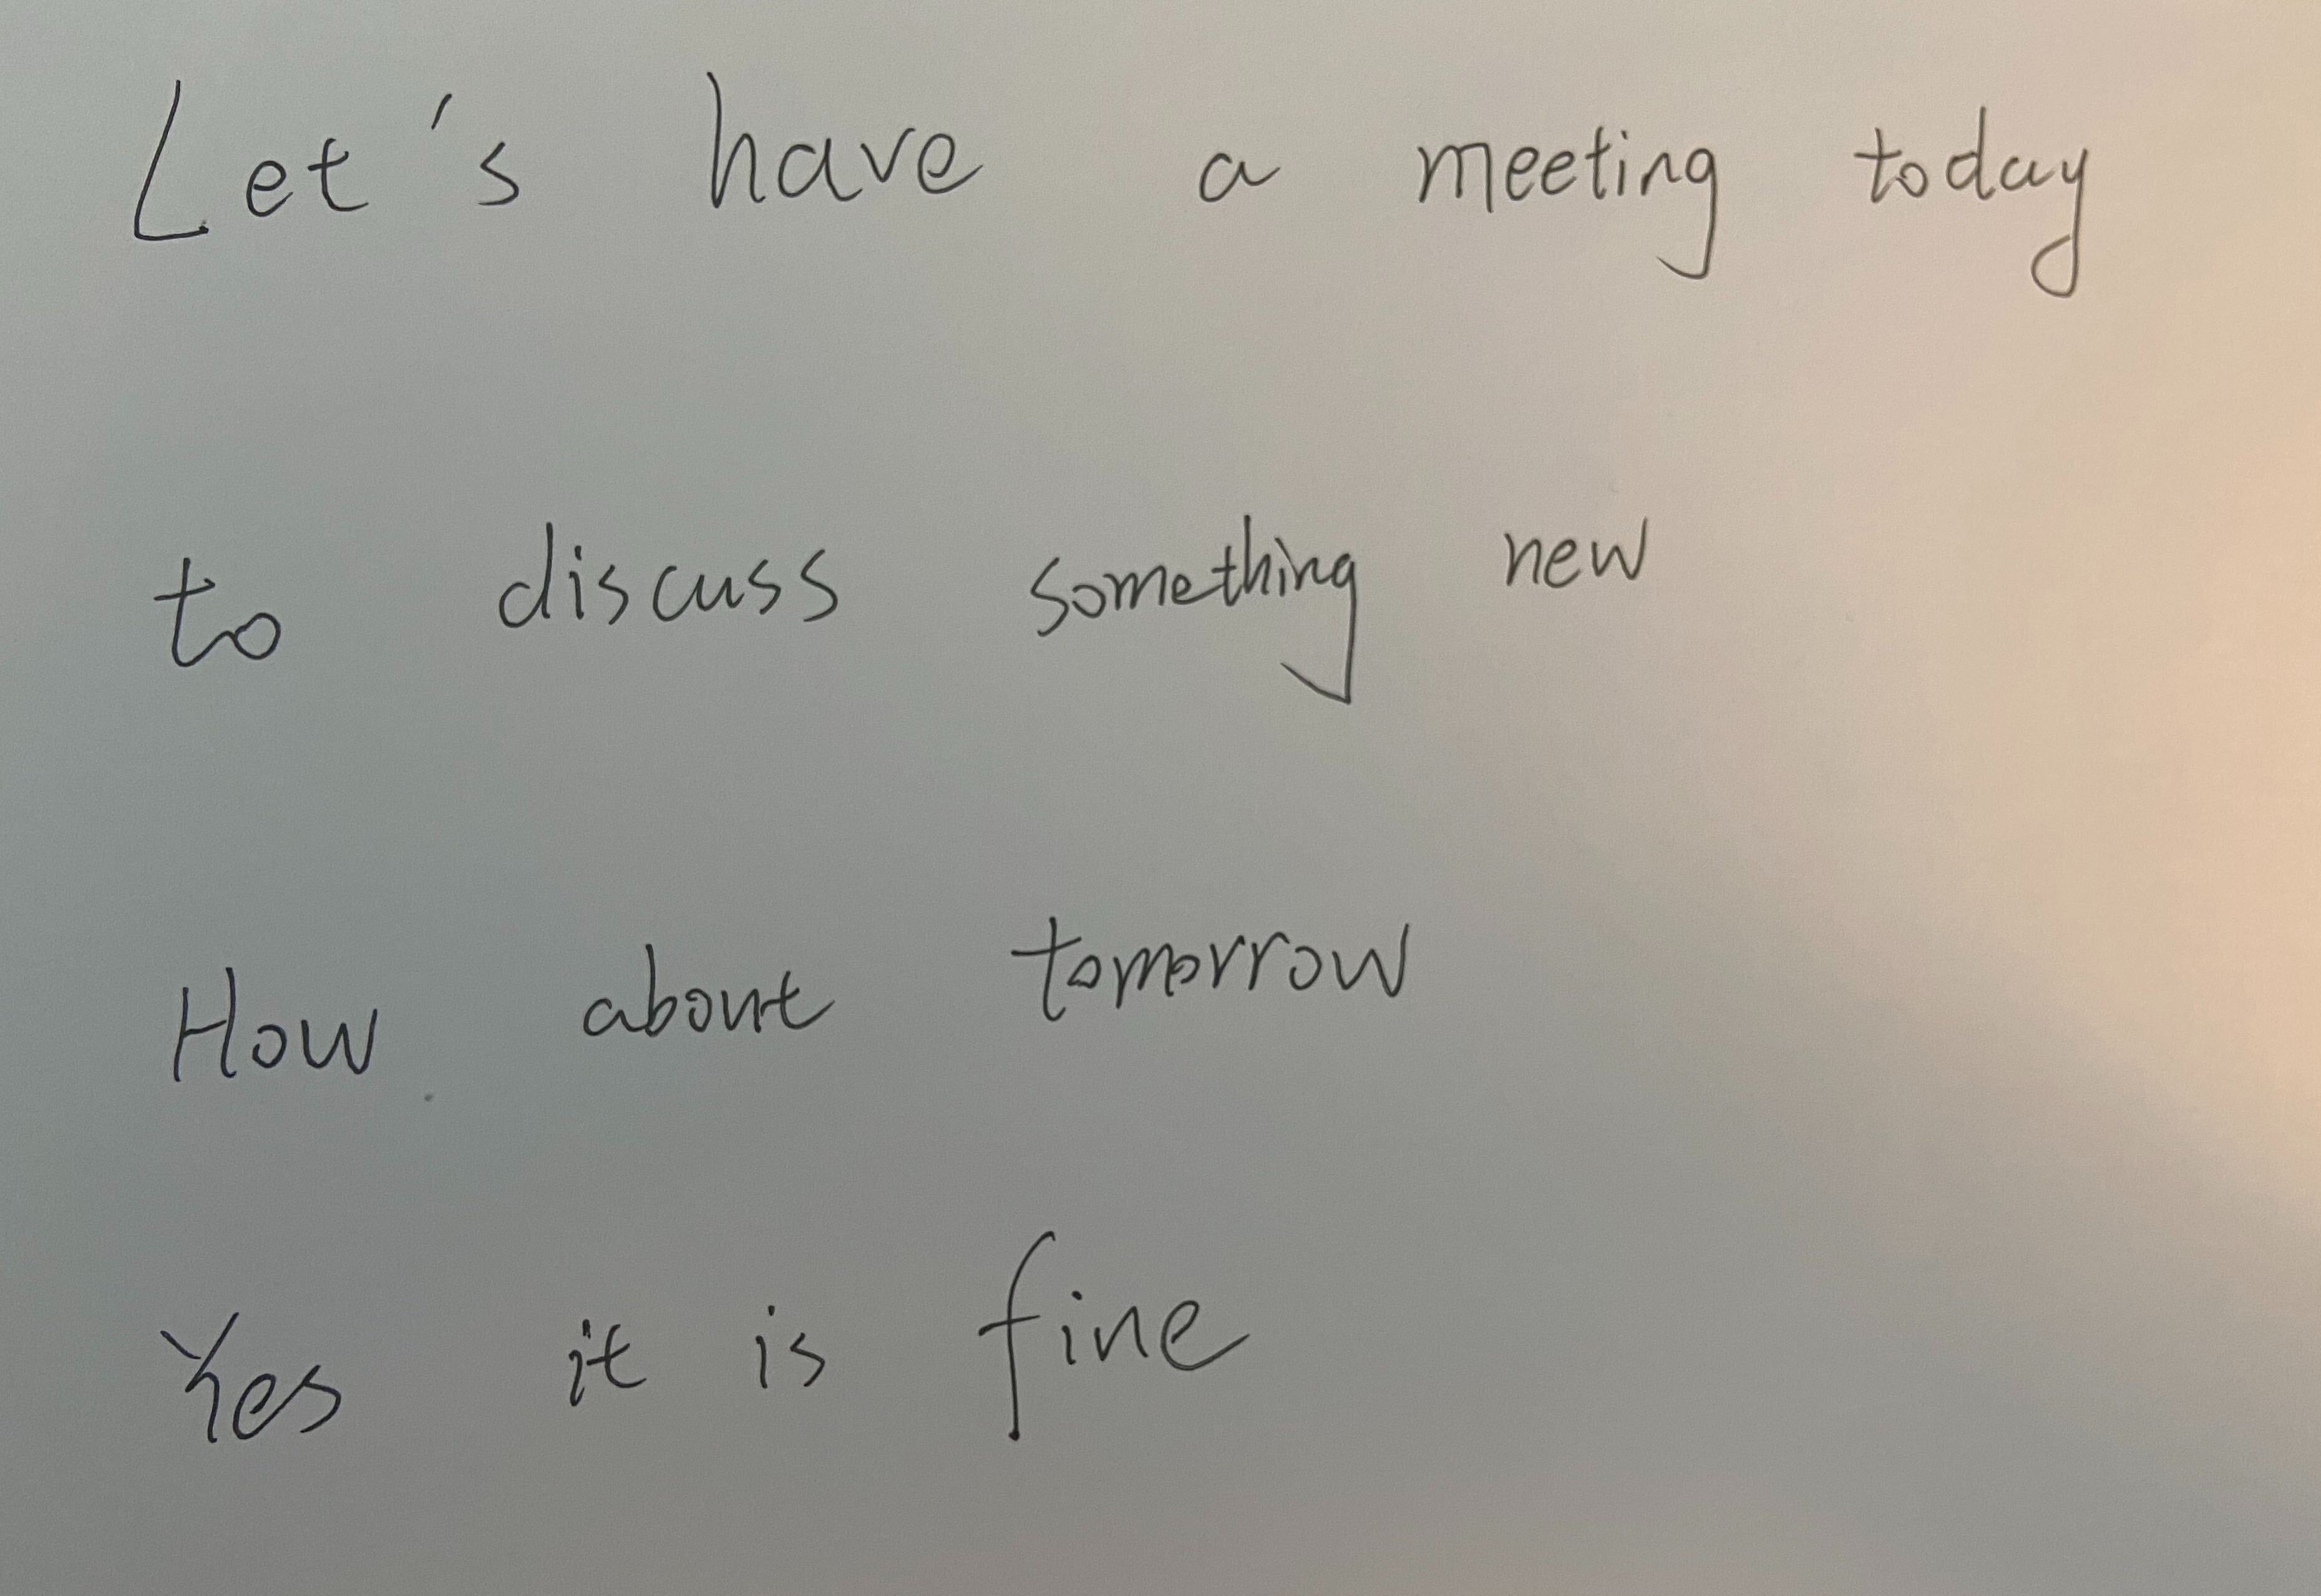 Let's have a meeting today
to discuss something new
How about tomorrow
Yes it is fine